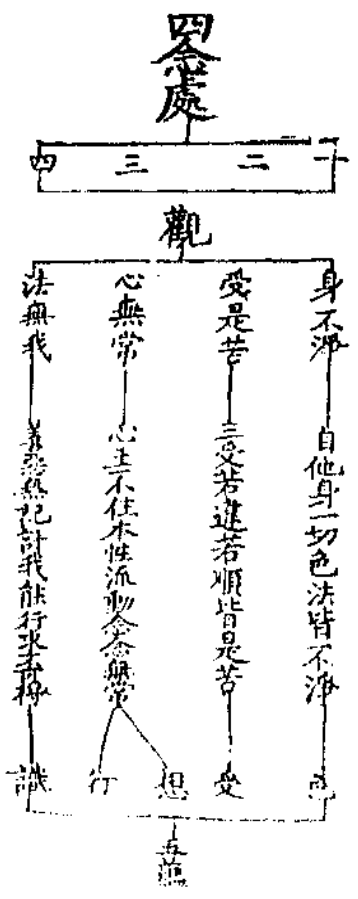 四念處
一 二 三 四
觀
身不淨
受是苦
心無常
法無我
自他身一切色法皆不淨
三受若違若順皆是苦
心王不住本性流動念念無常
善惡無記計我能行
色
受
想
行
識
五蘊